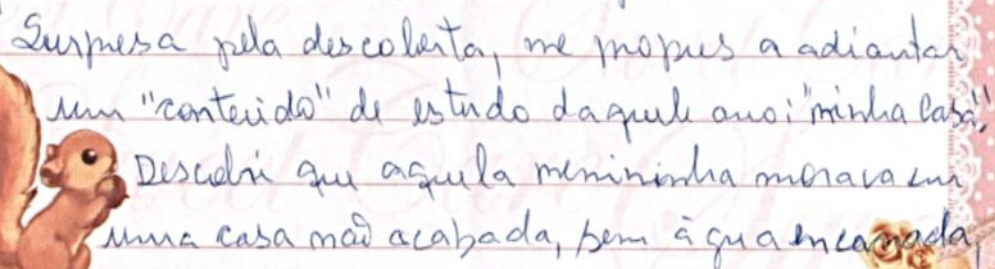 Surpresa pela descoberta, me propus a adiantar
um "conteúdo" de estudo daquele ano: "minha casa".
Descobri que aquela menininha morava em
uma casa não acabada, sem água encanada,